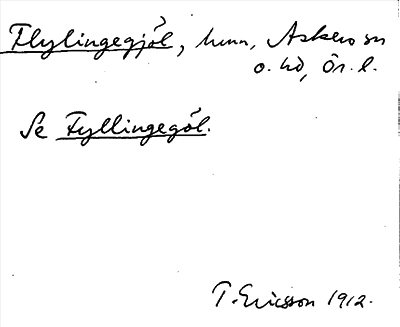 Flylingegjöl, hmn, Askers sn
o. hd, Ör. l.
Se Fyllingegöl.
T. Ericsson 1912.